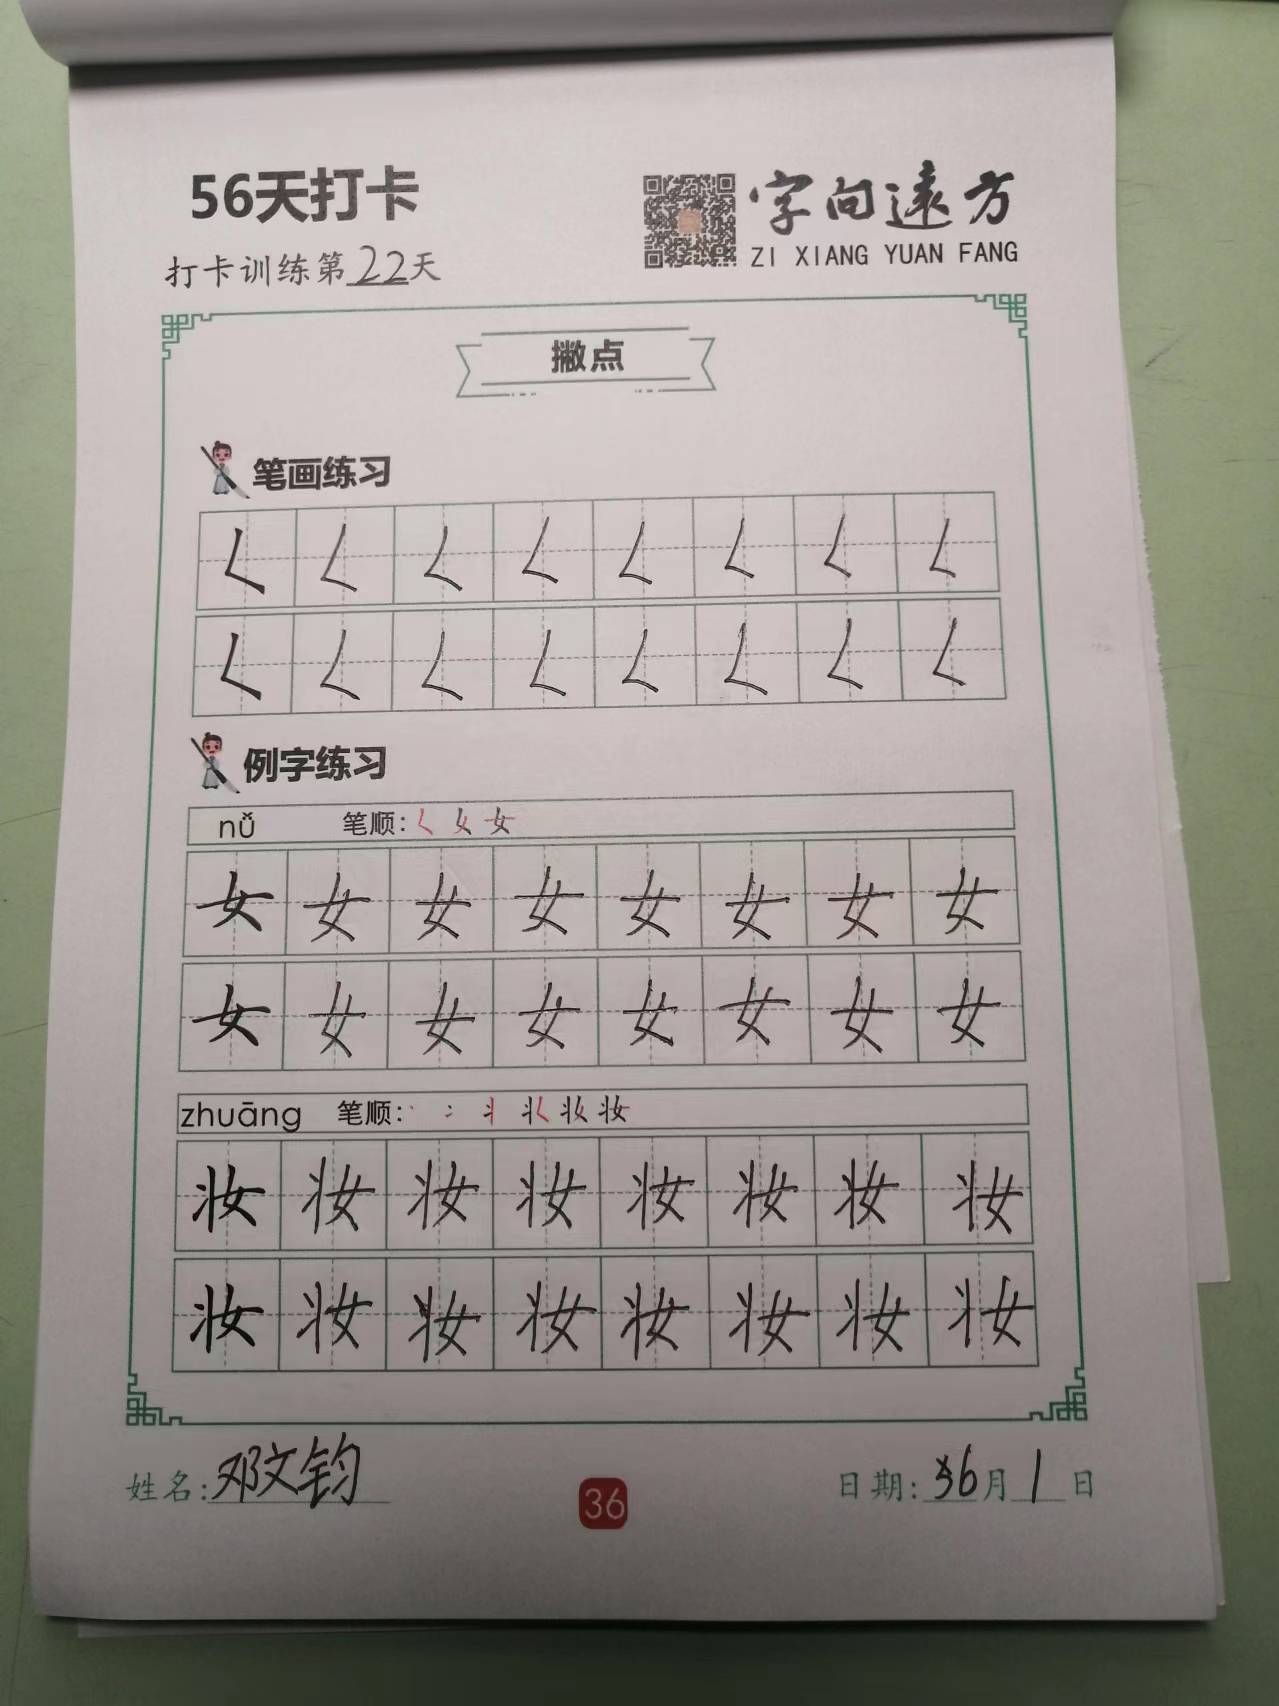 56天打卡
字向遠方
ZI XIANG YUAN FANG
打卡训练第22天
撇点
笔画练习
𡿨 𡿨 𡿨 𡿨 𡿨 𡿨 𡿨 𡿨
𡿨 𡿨 𡿨 𡿨 𡿨 𡿨 𡿨 𡿨
例字练习
nǚ 笔顺: 𡿨 女 女
女 女 女 女 女 女 女 女
女 女 女 女 女 女 女 女
zhuāng 笔顺:
妆 妆 妆 妆 妆 妆 妆 妆
妆 妆 妆 妆 妆 妆 妆 妆
姓名:邓文钧 36 日期: 6月1日